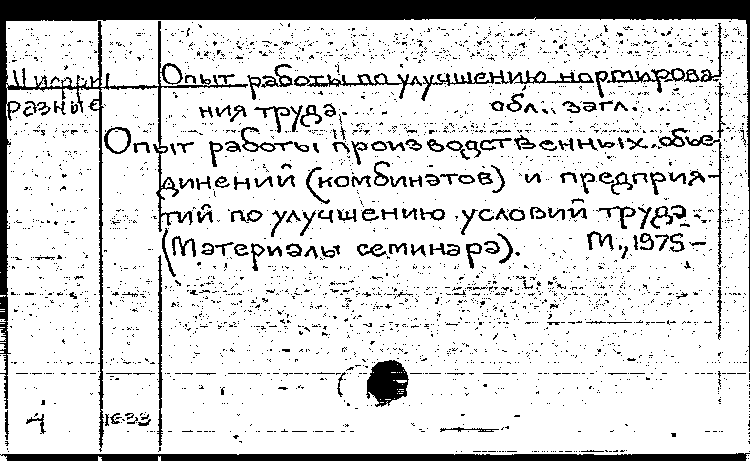 Шифры Опыт работы по улучшению нормирова-
разные ния труда. обл. загл.
Опыт работы производственных объе-
динений (комбинатов) и предприя-
тий по улучшению условий труда.
(Материалы семинара). М., 1975-
4 1633